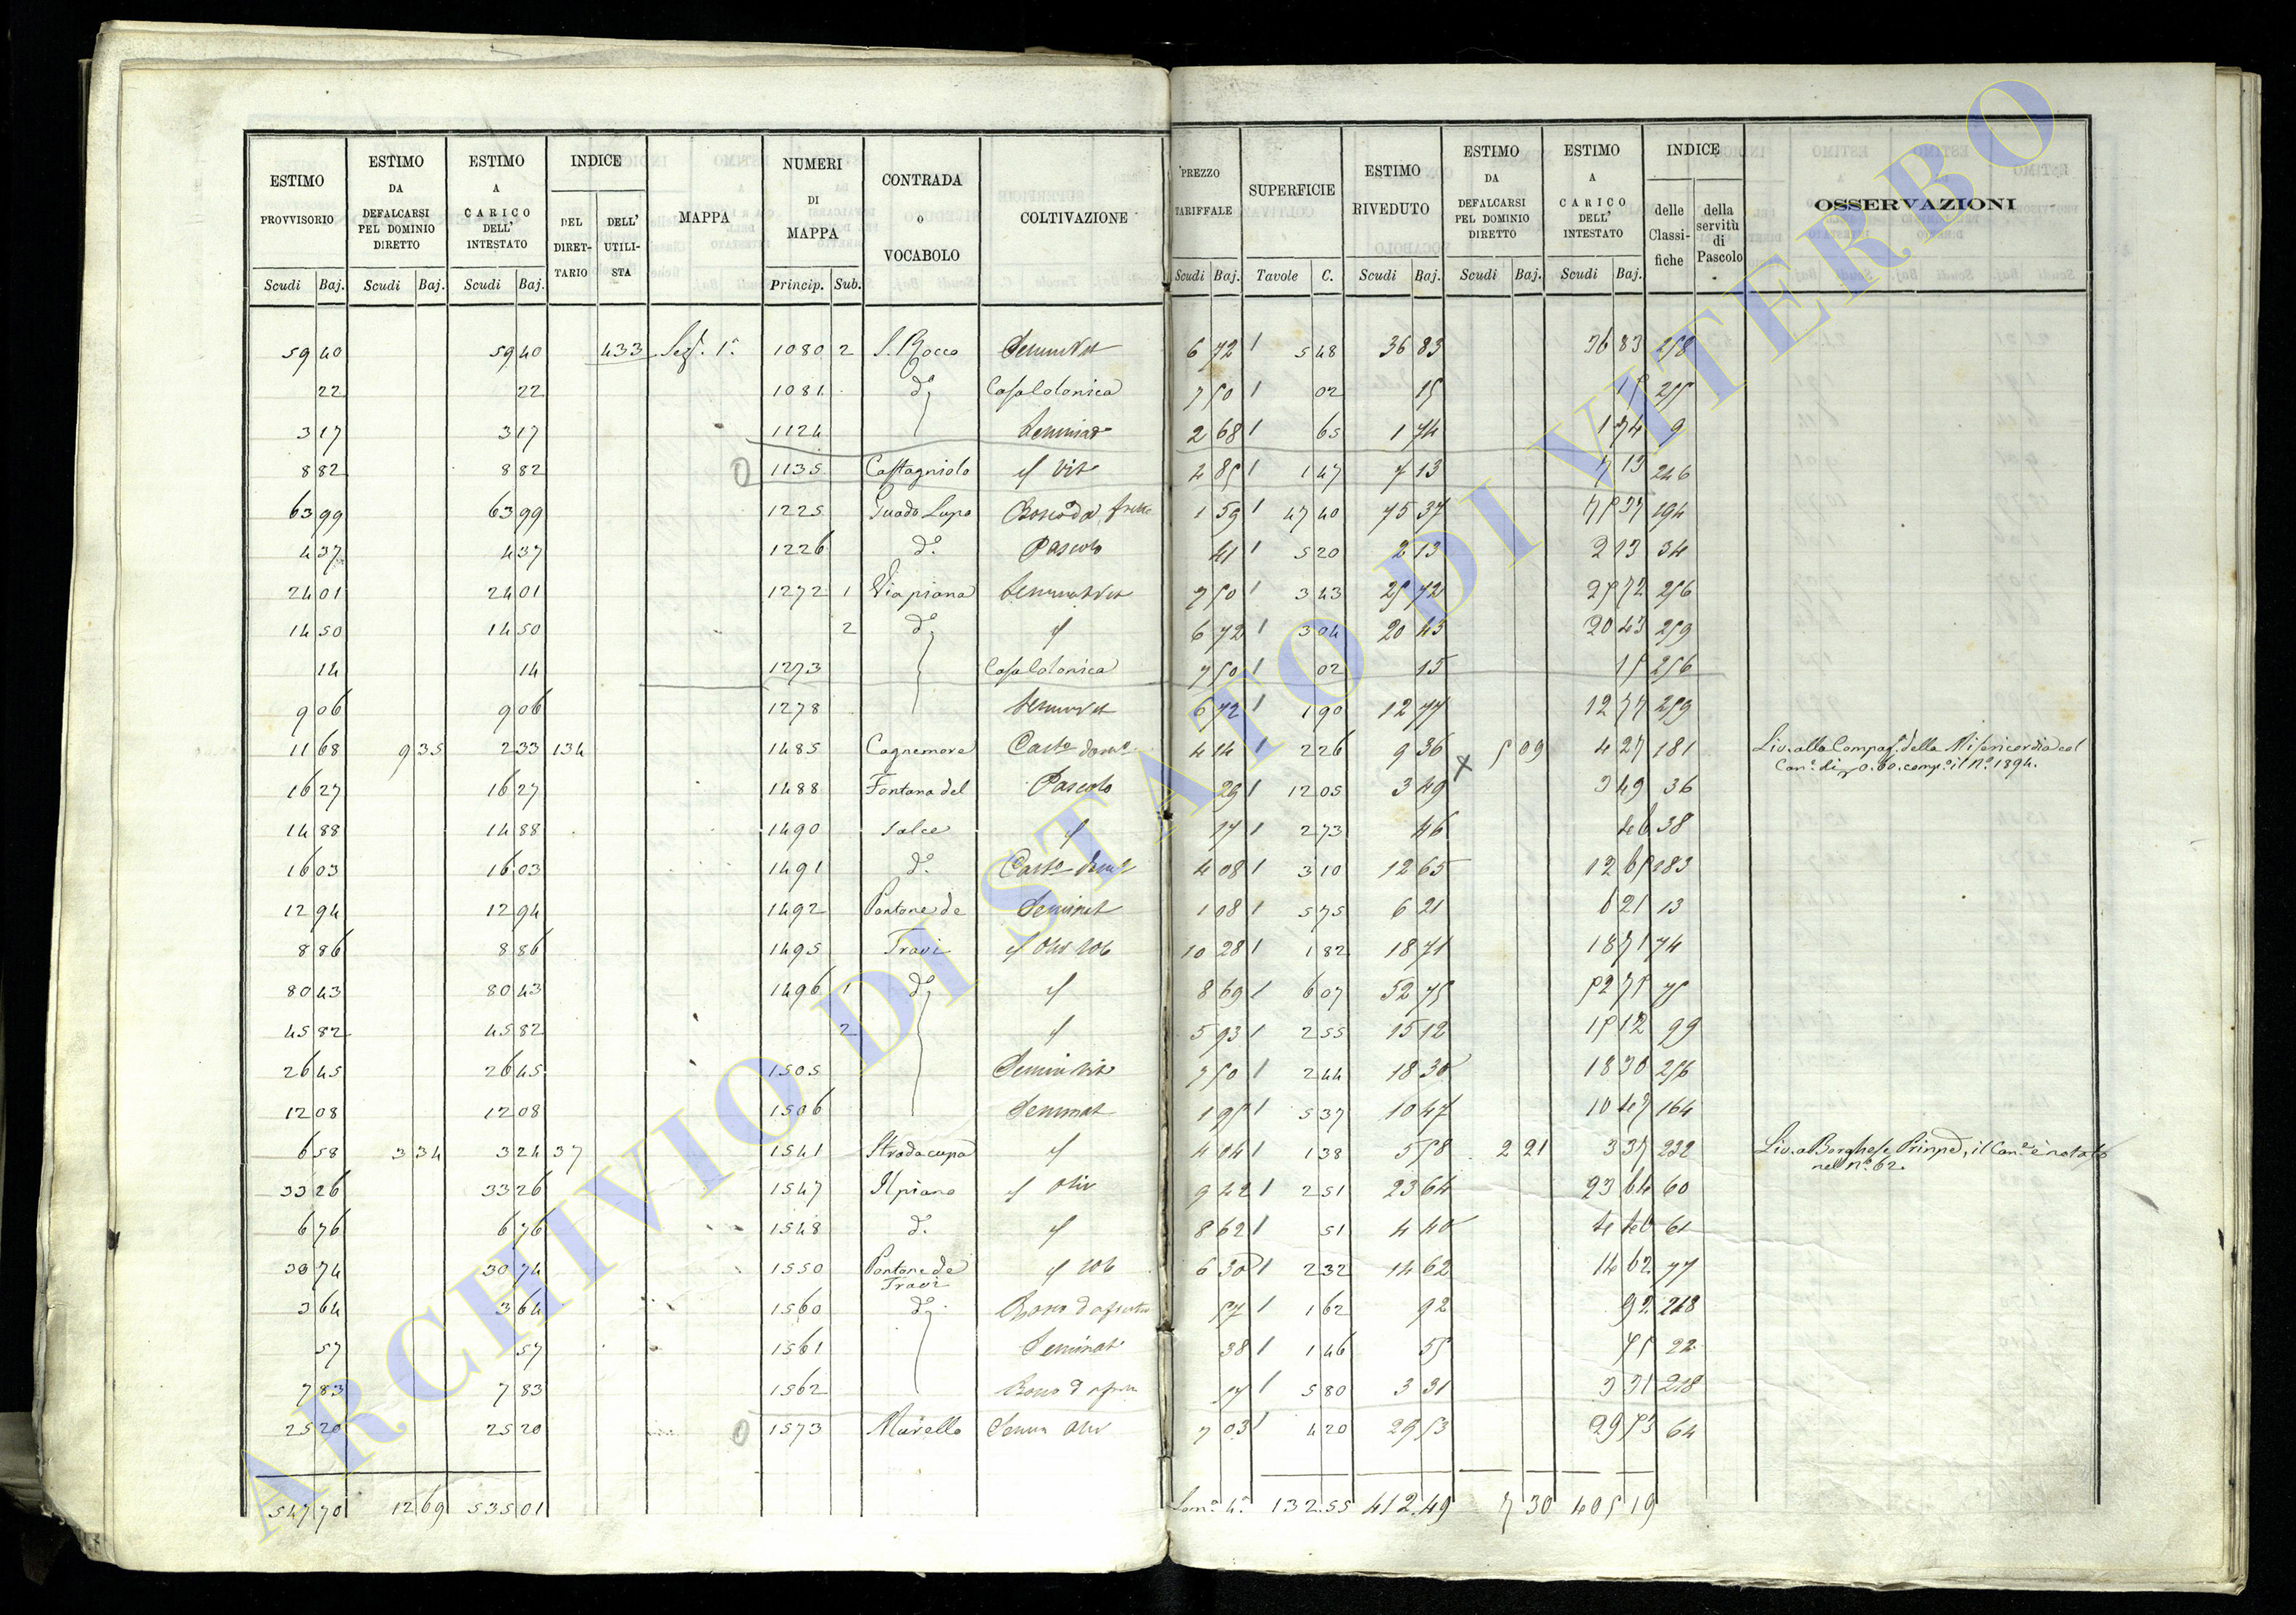 ESTIMO PROVVISORIO Scudi Baj. | ESTIMO DA DEFALCARSI PEL DOMINIO DIRETTO Scudi Baj. | ESTIMO A CARICO DELL' INTESTATO Scudi Baj. | INDICE DEL DIRETTARIO | DELL' UTILISTA | MAPPA | NUMERI DI MAPPA Princip. Sub. | CONTRADA o VOCABOLO | COLTIVAZIONE | PREZZO TARIFFALE Scudi Baj. | SUPERFICIE Tavole C. | ESTIMO RIVEDUTO Scudi Baj. | ESTIMO DA DEFALCARSI PEL DOMINIO DIRETTO Scudi Baj. | ESTIMO A CARICO DELL' INTESTATO Scudi Baj. | INDICE delle Classifiche | della servitù di Pascolo | OSSERVAZIONI
59 40 59 40 433 Sez. 1a 1080 2 S. Rocco 6 72 5 48 36 83 36 83 258
22 22 1081 do Casa Colonica 7 50 02 15 15 255
3 17 3 17 1124 Seminat 2 68 65 1 74 1 74 9
8 82 8 82 1135 Castagniolo Vit 4 85 1 47 7 13 7 13 246
63 99 63 99 1225 Guado Lupo 1 59 47 40 75 37 75 37 194
4 37 4 37 1226 do Pascolo 41 5 20 2 13 2 13 34
24 01 24 01 1272 1 Via piana 7 50 3 43 25 72 25 72 256
14 50 14 50 2 do 6 72 3 04 20 43 20 43 259
14 14 1273 Casa Colonica 7 50 02 15 15 256
9 06 9 06 1278 6 72 1 90 12 77 12 77 259
11 68 9 35 2 33 134 1485 Cagnemore Casto 4 14 2 26 9 36 5 09 4 27 181 Liv. alla Compag. della Misericordia col
Cano di 0.60. compo il No 1894.
16 27 16 27 1488 Fontana del Pascolo 29 12 05 3 49 3 49 36
14 88 14 88 1490 Salce 17 2 73 46 46 38
16 03 16 03 1491 do Casto 4 08 3 10 12 65 12 65 183
12 94 12 94 1492 Pantane de Seminat 1 08 5 75 6 21 6 21 13
8 86 8 86 1495 Travi 10 28 1 82 18 71 18 71 74
80 43 80 43 1496 1 do 8 69 6 07 52 75 52 75 75
45 82 45 82 2 5 93 2 55 15 12 15 12 99
26 45 26 45 1505 7 50 2 44 18 30 18 30 256
12 08 12 08 1506 Seminat 1 95 5 37 10 47 10 47 164
6 58 3 34 3 24 37 1541 Strada cupa 4 14 1 38 5 58 2 21 3 37 232 Liv. a Borghese Prinpe, il Cano è notato
nel No 62.
33 26 33 26 1547 Il piano Oliv 9 42 2 51 23 64 23 64 60
6 76 6 76 1548 do 8 62 51 4 40 4 40 61
30 74 30 74 1550 Pantane de 6 30 2 32 14 62 14 62 77
Travi
3 64 3 64 1560 do 57 1 62 92 92 218
57 57 1561 Seminat 38 1 46 55 55 22
7 83 7 83 1562 57 5 80 3 31 3 31 218
25 20 25 20 1573 Murello Oliv 7 03 4 20 29 53 29 53 64
547 70 12 69 535 01 132.55 412.49 7 30 405 19
ARCHIVIO DI STATO DI VITERBO